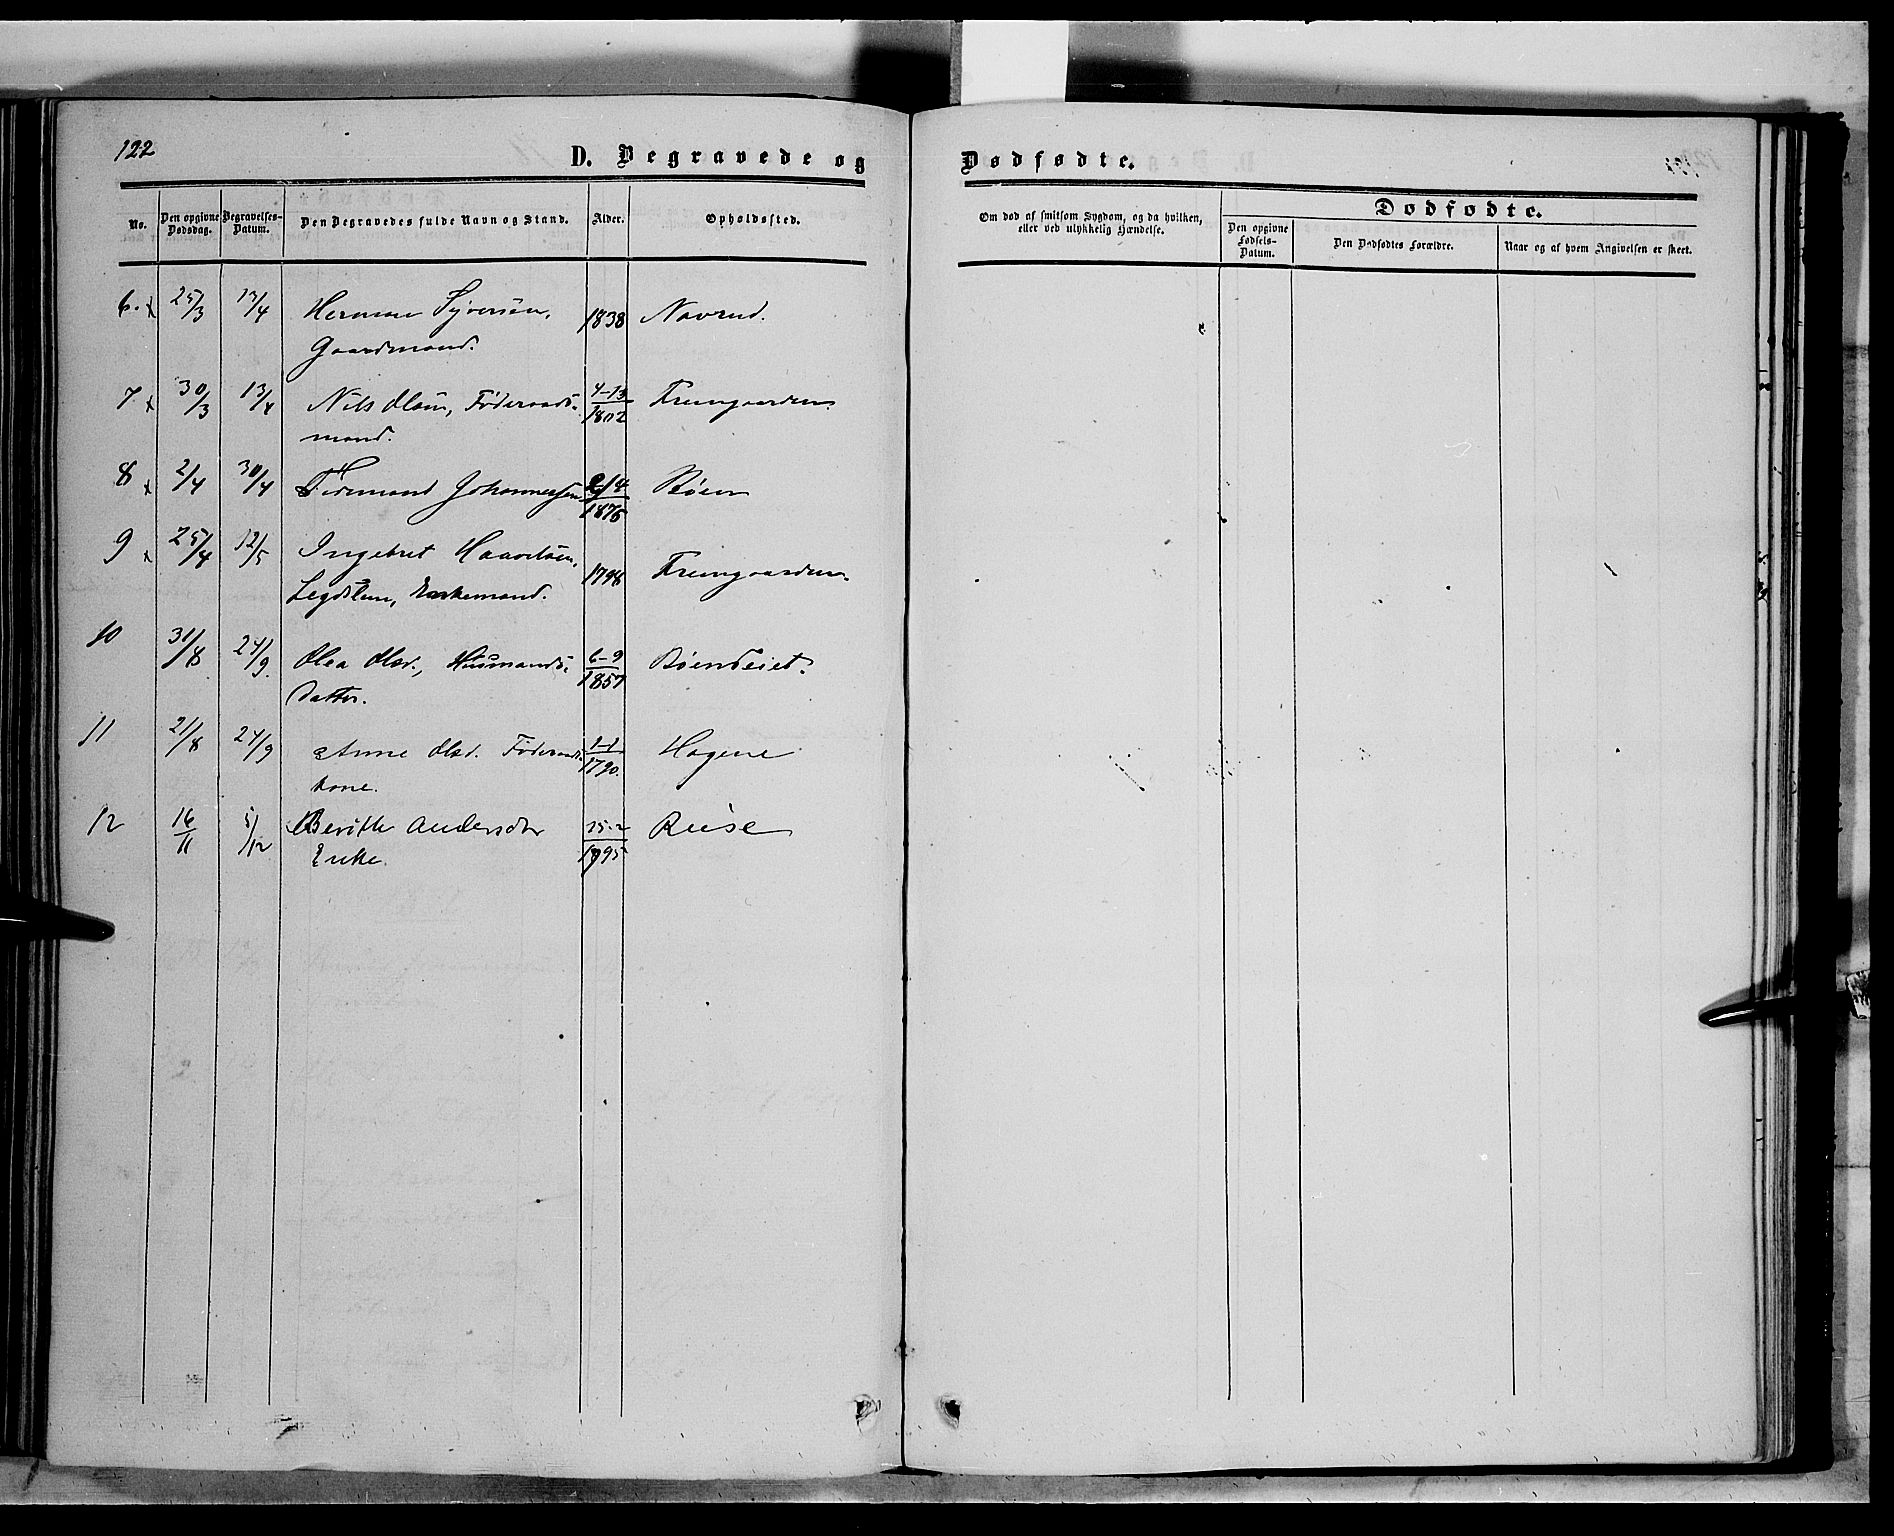 122
D. Begravede og Dødfødte.
No. Den opgivne Dødsdag. Begravelses-Datum. Den Begravedes fulde Navn og Stand. Alder. Opholdssted. Om død af smitsom Sygdom, og da hvilken, eller ved ulykkelig Hændelse. Dødfødte.
Den opgivne Fødsels-Datum. Den Dødfødtes Forældre. Naar og af hvem Angivelsen er skeet.
6. x 25/3 13/4 Herman Syversen, 1838 Navrud.
Gaardmand.
7 x 30/3 13/4 Nils Olsen, Føderaads- 4-13/1802 Fremgaarden
mand.
8 x 2/4 30/4 Tidemand Johannessen 1875 Bøen
9 x 25/4 12/5 Ingebret Haavelsen, 1798 Fremgaarden.
Legdslem, Enkemand.
10 31/8 24/9 Olea Olsd., Huusmands- 6-9/1857 Bøenseiet.
datter.
11 21/8 24/9 Anne Olsd. Føderaads- 1-1/1790. Hagene
kone.
12 16/11 5/12 Berithe Andersdtr 15-2/1795 Ruse
Enke.